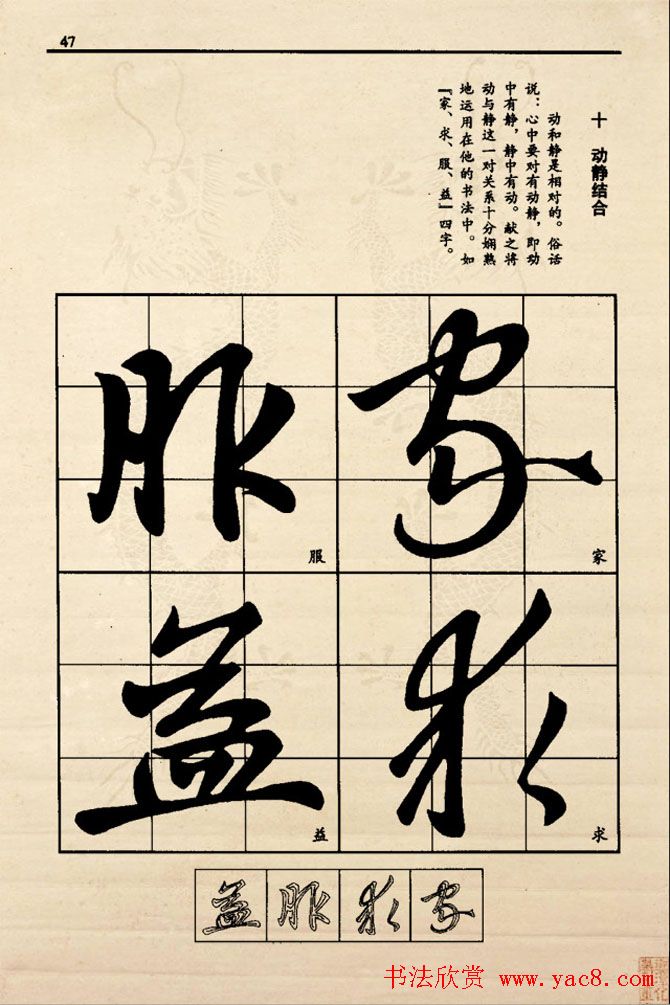 47
十 动静结合
动和静是相对的。俗话
说：心中要对有动静，即动
中有静，静中有动。献之将
动与静这一对关系十分娴熟
地运用在他的书法中。如
『家、求、服、益』四字。
家
家
求
求
服
服
益
益
益服求家
书法欣赏 www.yac8.com